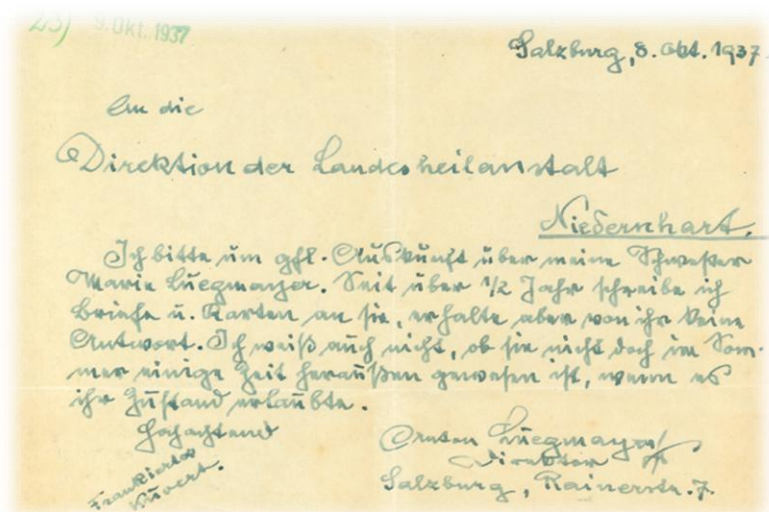 23)
9. Okt. 1937
Salzburg, 8. Okt. 1937.
An die
Direktion der Landesheilanstalt
Niedernhart.
Ich bitte um gfl. Auskunft über meine Schwester
Marie Luegmayer. Seit über 1/2 Jahr schreibe ich
Briefe u. Karten an sie, erhalte aber von ihr keine
Antwort. Ich weiß auch nicht, ob sie nicht doch im Som-
mer einige Zeit heraußen gewesen ist, wenn es
ihr Zustand erlaubte.
Hochachtend
Anton Luegmayer
Direktor
Frankiertes
Kuvert.
Salzburg, Rainerstr. 7.